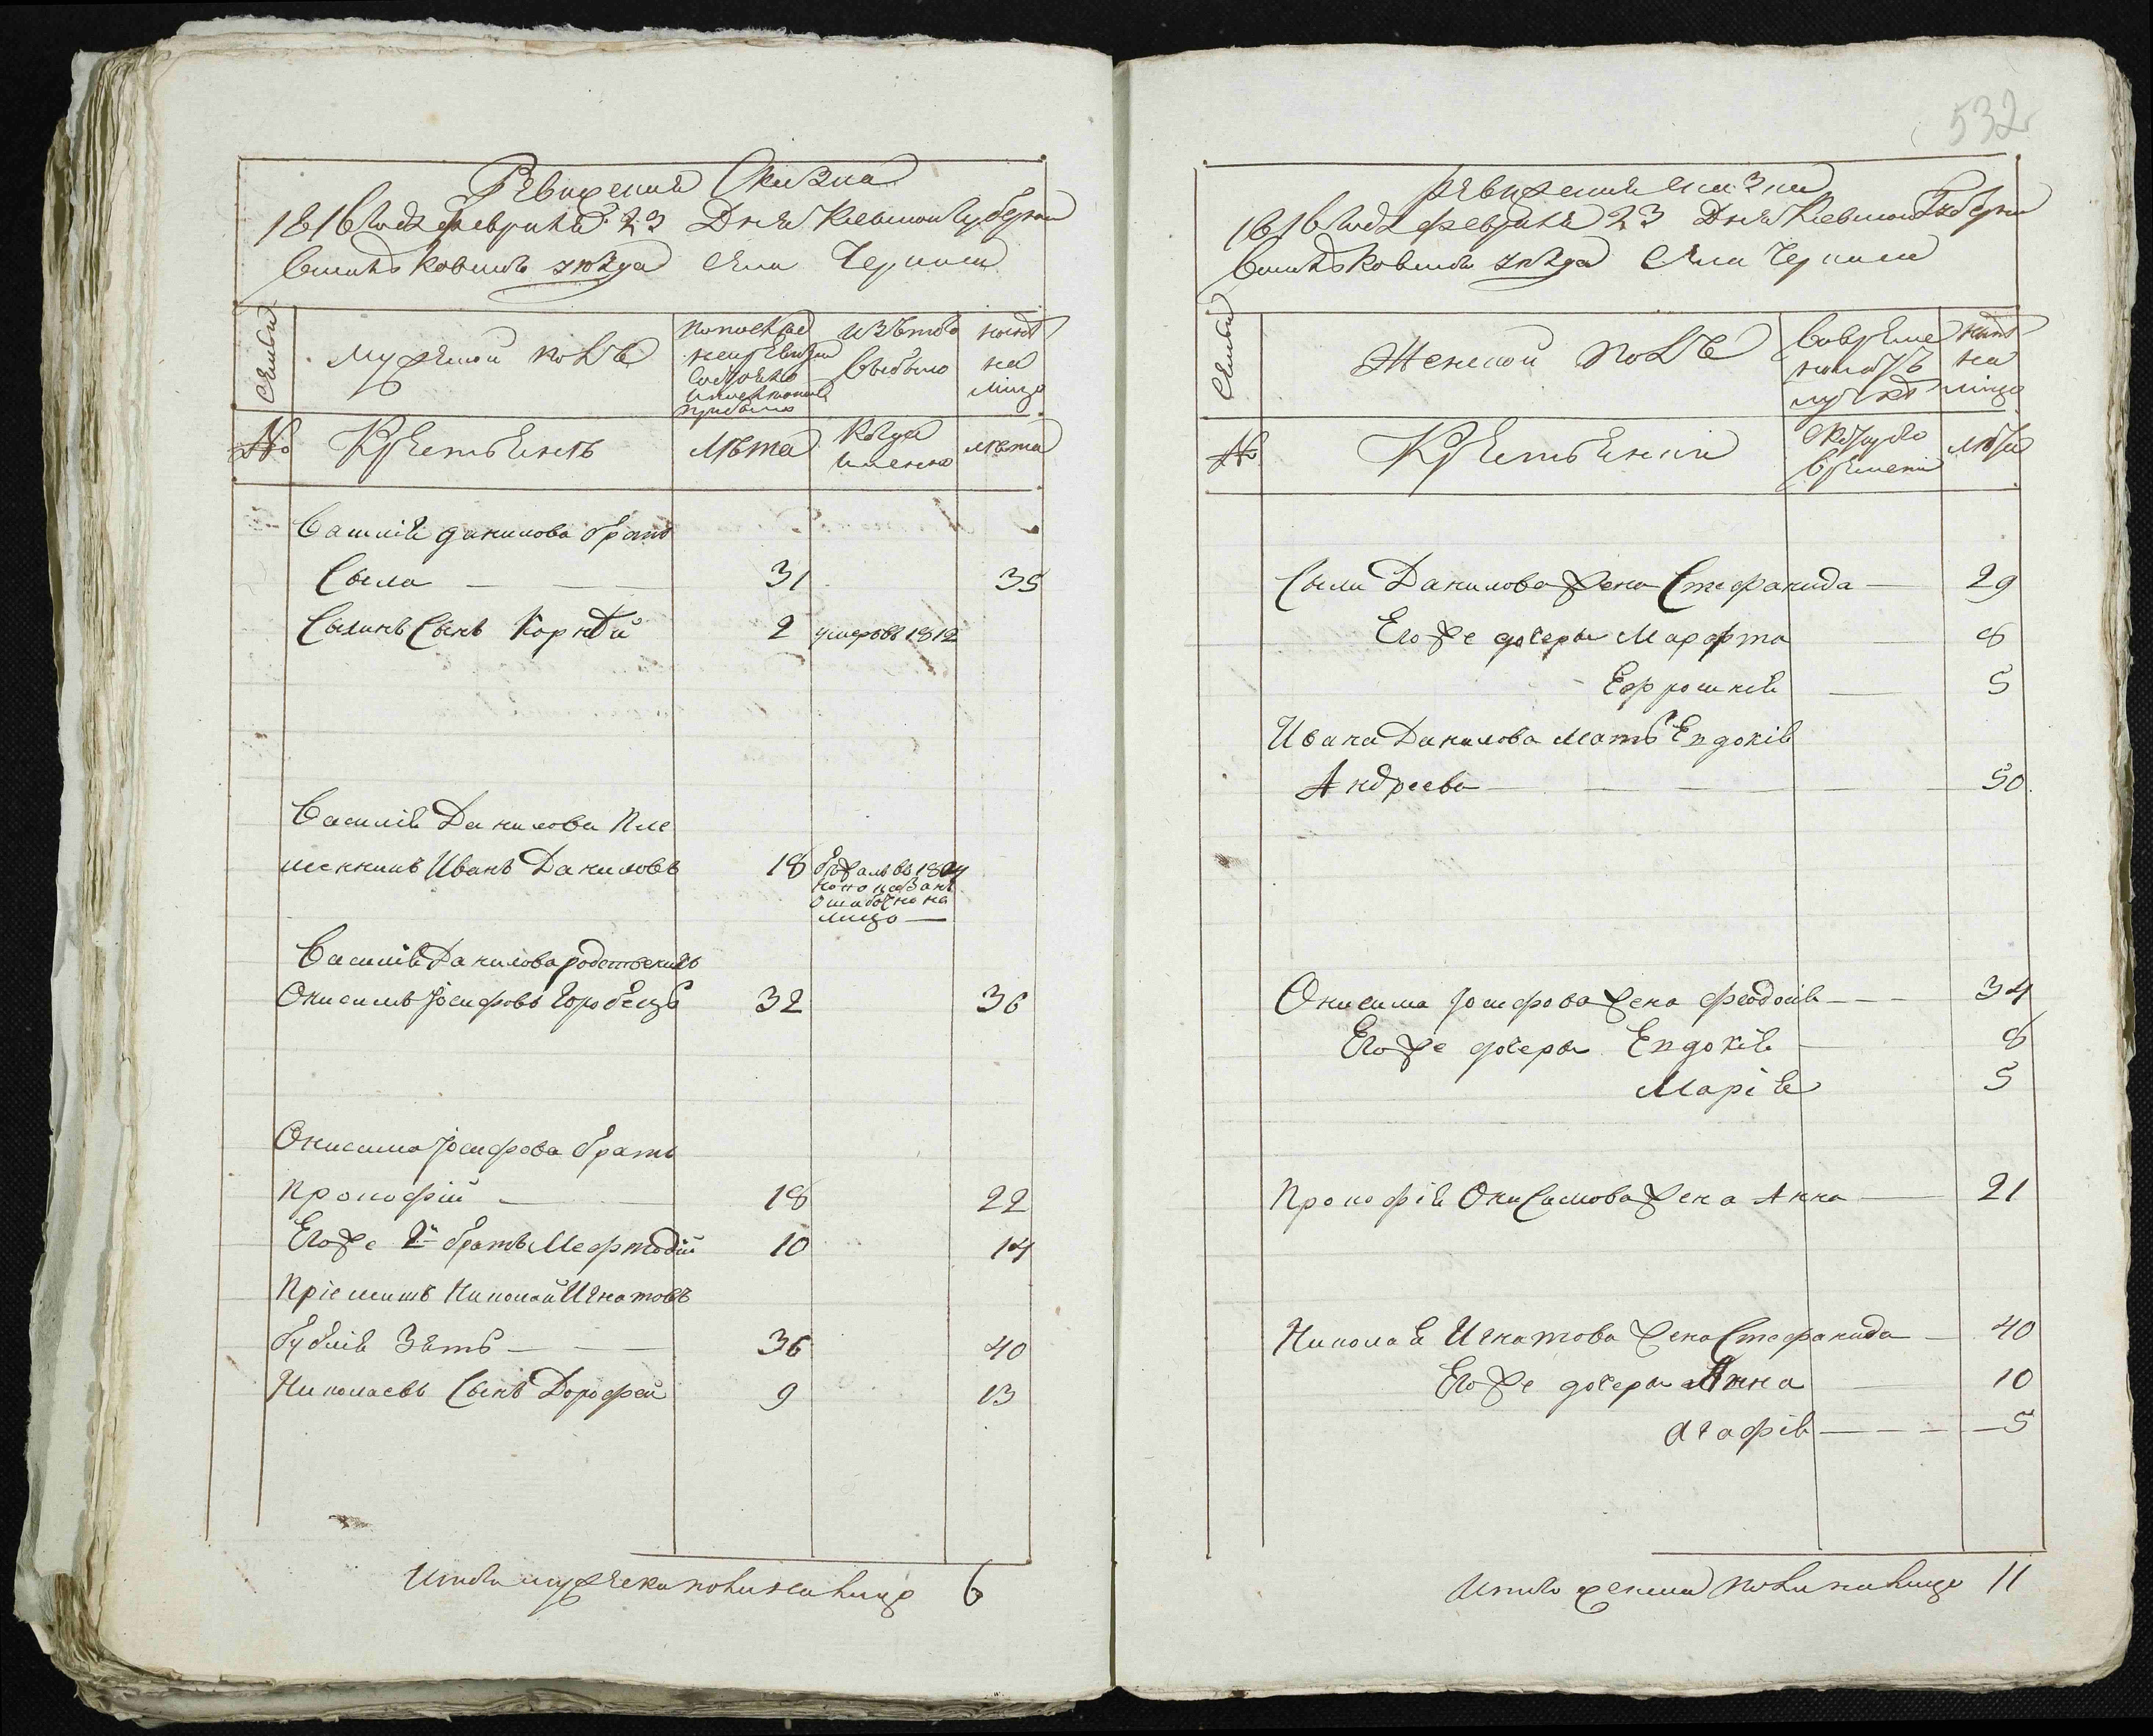 Ревижская Сказка
1816 года Февраля 23 Дня Киевской Губернии
Васильковского уезда села Черкаса
Семьи
Мужеской полъ
По последней ревизии состояло и после того прибыло
Изъ того выбыло
Ныне на лицо
№
Крестьянъ
Лета
Когда именно
Лета
Василія Данилова братъ
Сыла — — 31 35
Сылинъ Сынъ Корнѣй 2 умеръ въ 1812
Василія Данилова Пле
менникъ Иванъ Даниловъ 18 бежалъ въ 1804
но показанъ
ошибочно на
лицо —
Василія Данилова родственникъ
Онисимъ Іосифовъ Горобецъ 32 36
Онисима Іосифова братъ
Прокофій — — 18 22
Его же 2й братъ Мефтодій 10 14
Пріемишъ Николай Игнатовъ
бублія Зять — — 36 40
Николаевъ Сынъ Дорофей 9 13
Итого мужеска пола на лицо 6
532
Ревижская сказка
1816 года февраля 23 Дня Киевской Губернии
Васильковского уезда села Черкаса
Семьи
Женской полъ
Во временной отлучке
Ныне на лицо
№
Крестьянки
Съ котораго времени
Лета
Сылы Данилова жена Стефанида — 29
Его же дочери Марфта — 8
Ефросинія — 5
Ивана Данилова мать Евдокія
Андреева — — — — 50
Онисима Іосифова жена Феодосія — — 34
Его же дочери Евдокія — 8
Марія 5
Прокофія Онисимова жена Анна — 21
Николая Игнатова жена Стефанида — 40
Его же дочери Анна — 10
Агафія — — — — 5
Итого женска пола на лицо 11